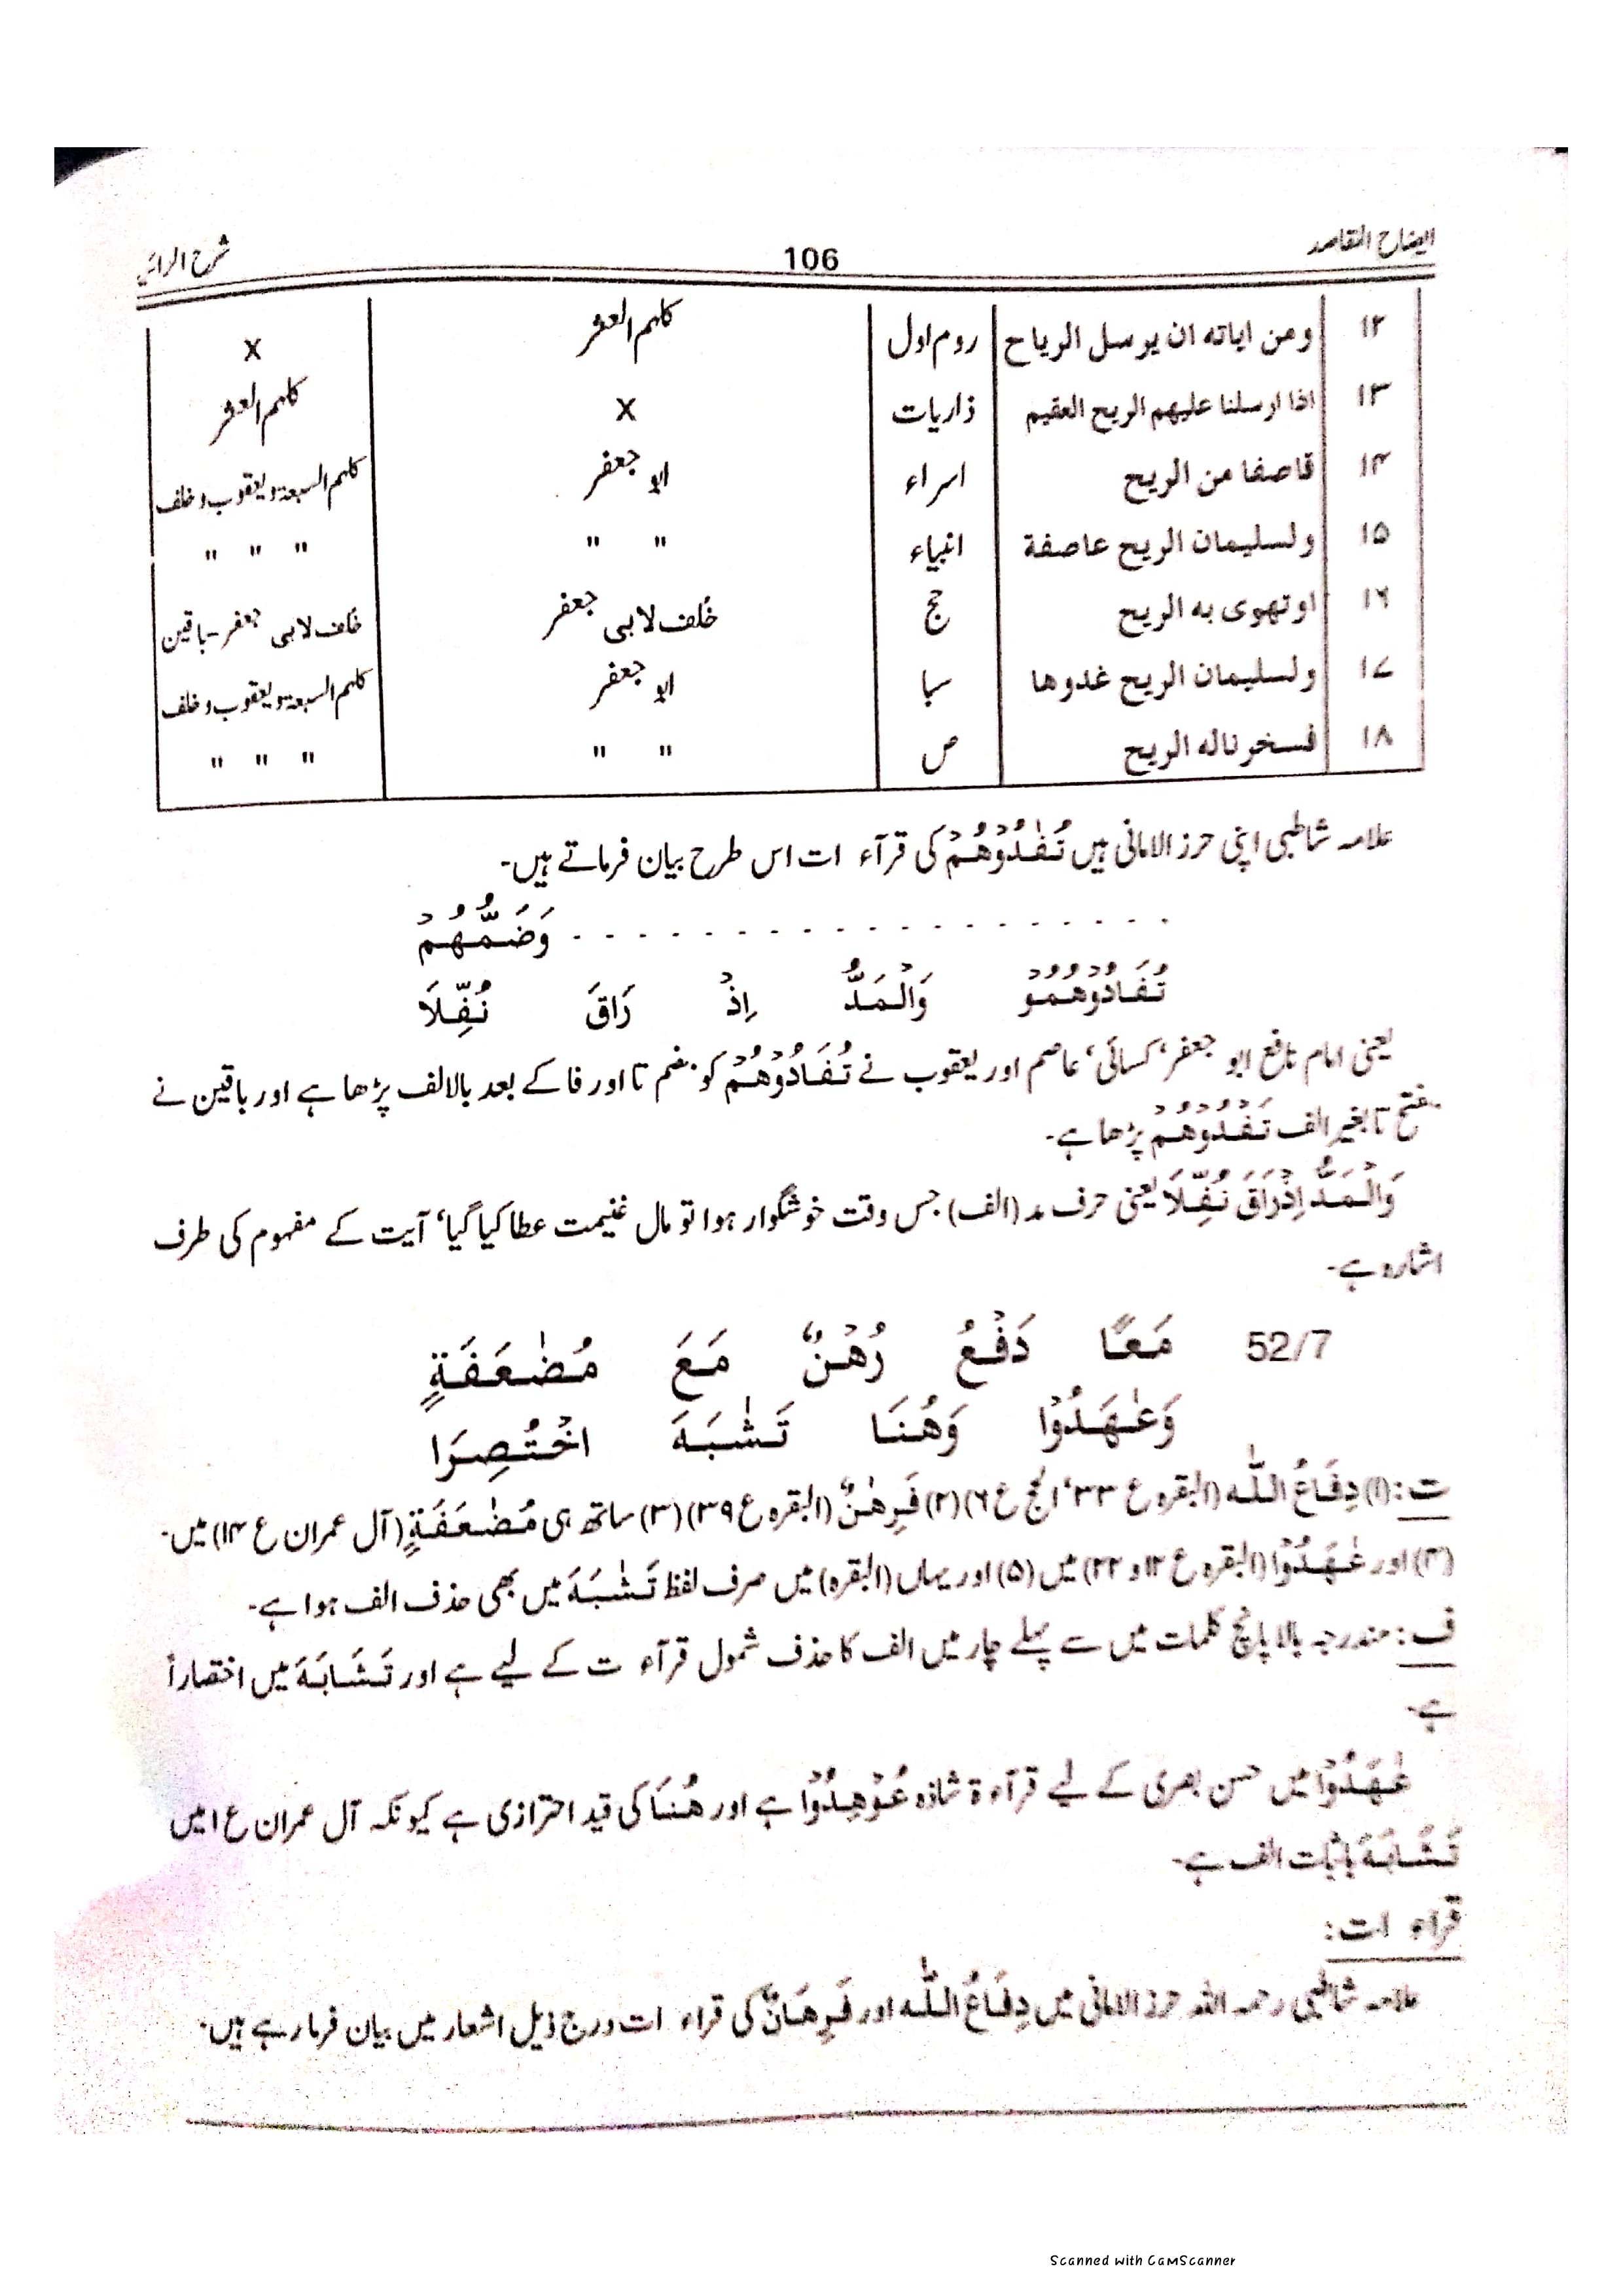 ایضاح المقاصد 106 شرح الرائیہ
۱۲ ومن اياته ان يرسل الرياح روم اول کلہم العشر x
۱۳ اذا ارسلنا عليهم الريح العقيم ذاریات x کلہم العشر
۱۴ قاصفا من الريح اسراء ابو جعفر کلہم السبعۃ ویعقوب وخلف
۱۵ ولسليمان الريح عاصفة انبیاء " " " " "
۱۶ اوتهوى به الريح حج خلف لابی جعفر خلف لابی جعفر-باقین
۱۷ ولسليمان الريح غدوها سبا ابو جعفر کلہم السبعۃ ویعقوب وخلف
۱۸ فسخرناله الريح ص " " " " "
علامہ شاطبی اپنی حرز الامانی ہیں تُفٰدُوْهُمْ کی قرآء ات اس طرح بیان فرماتے ہیں۔
. . . . . . . . . . . . . . . . . . . وَضَمُّهُمْ
تُفَادُوْهُمُوْ وَالْمَدُّ اِذْ رَاقَ نُفِّلَا
یعنی امام نافع ابو جعفر، کسائی، عاصم اور یعقوب نے تُفَادُوْهُمْ کو بضم تا اور فا کے بعد بالالف پڑھا ہے اور باقین نے
بفتح تا بغیر الف تَفْدُوْهُمْ پڑھا ہے۔
وَالْمَدُّ اِذْرَاقَ نُفِّلَا یعنی حرف مد (الف) جس وقت خوشگوار ہوا تو مال غنیمت عطا کیا گیا، آیت کے مفہوم کی طرف
اشارہ ہے۔
52/7 مَعًا دَفْعُ رُهْنٌ مَعَ مُضٰعَفَةٍ
وَعٰهَدُوْا وَهُنَا تَشٰبَهَ اخْتُصِرَا
ت: (۱) دِفَاعُ اللّٰه (البقرہ ع ۳۳، الحج ع ۶) (۲) فَرِهٰنٌ (البقرہ ع ۳۹) (۳) ساتھ ہی مُضٰعَفَةٍ (آل عمران ع ۱۴) میں۔
(۴) اور عٰهَدُوْا (البقرہ ع ۱۲ و ۲۲) میں (۵) اور یہاں (البقرہ) میں صرف لفظ تَشٰبَهَ میں بھی حذف الف ہوا ہے۔
ف: مندرجہ بالا پانچ کلمات میں سے پہلے چار میں الف کا حذف شمول قرآء ت کے لیے ہے اور تَشَابَهَ میں اختصاراً
ہے۔
عٰهَدُوْا میں حسن بصری کے لیے قرآءۃ شاذہ عُوْهِدُوْا ہے اور هُنَا کی قید احترازی ہے کیونکہ آل عمران ع ۱ میں
تَشَابَهَ باثبات الف ہے۔
قراء ات:
علامہ شاطبی رحمہ اللہ حرز الامانی میں دِفَاعُ اللّٰه اور فَرِهَانٌ کی قراء ات درج ذیل اشعار میں بیان فرما رہے ہیں۔
Scanned with CamScanner